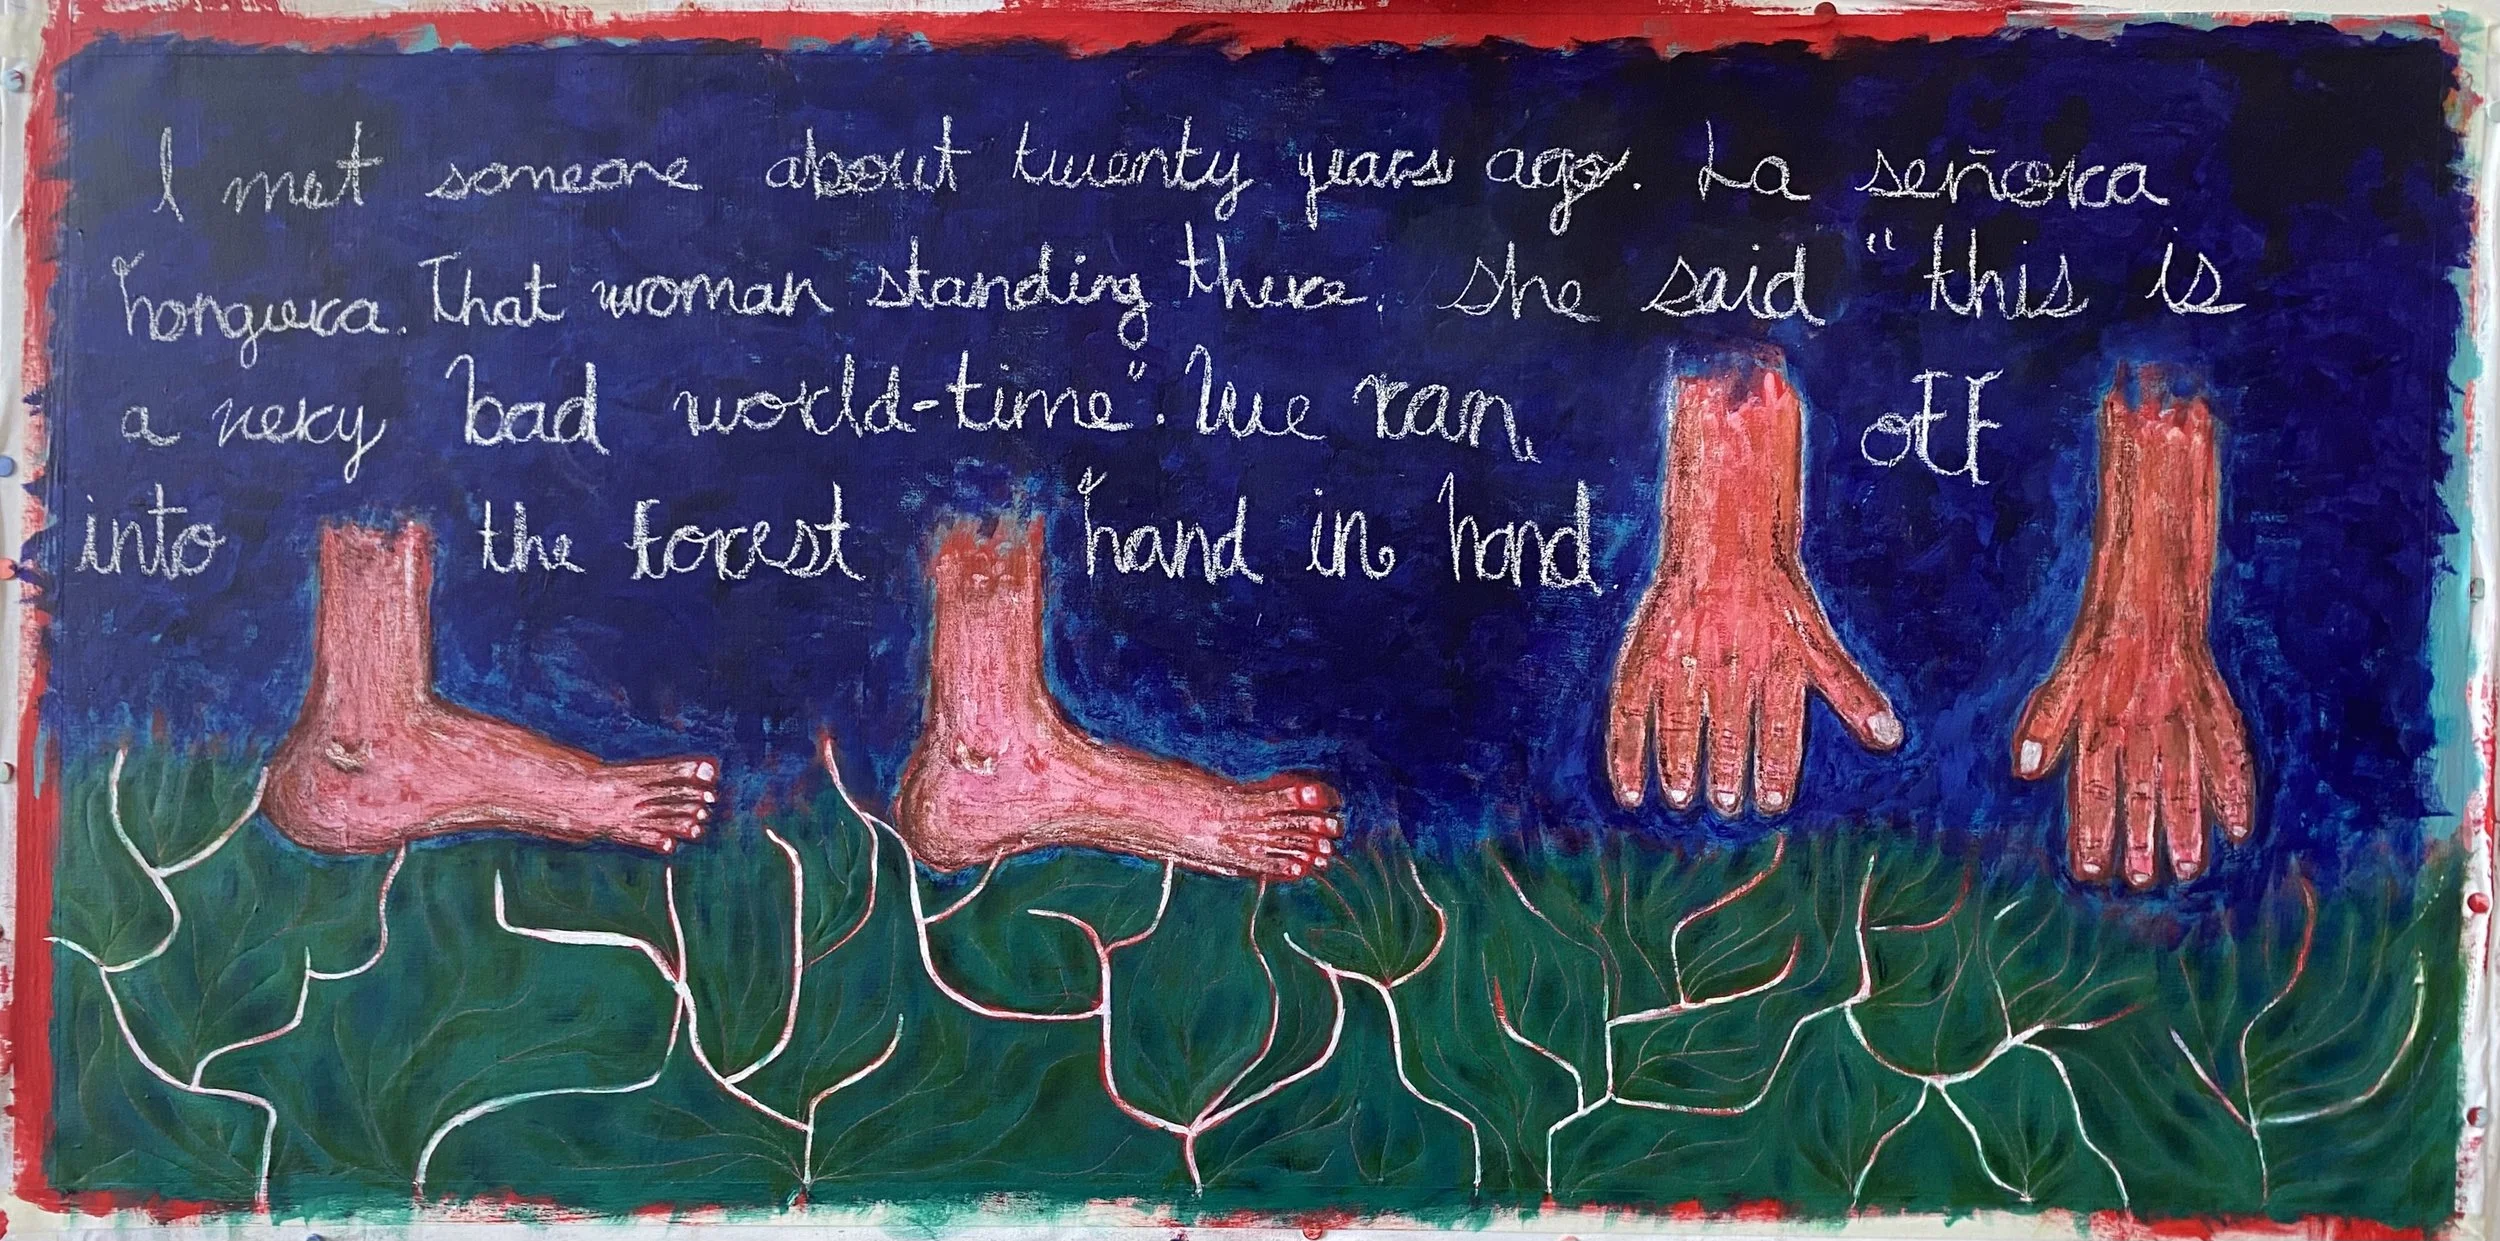 I met someone about twenty years ago. La señora
honguera. That woman standing there. She said "this is
a very bad world-time". We ran, off
into the forest hand in hand.